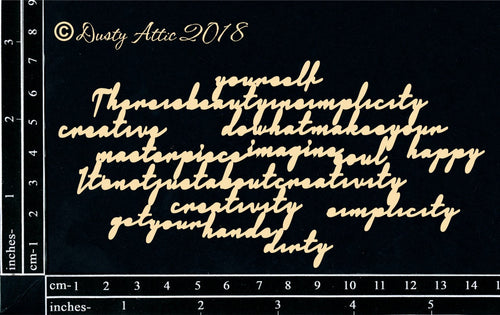 © Dusty Attic 2018
yourself
Thereisbeautyinsimplicity
creative dowhatmakesyour
masterpiece imagine soul happy
It'snotjustaboutcreativity
creativity simplicity
getyourhands
dirty
inches- 1 2 3
cm-1 2 3 4 5 6 7 8 9
cm-1 2 3 4 5 6 7 8 9 10 11 12 13 14
inches- 1 2 3 4 5